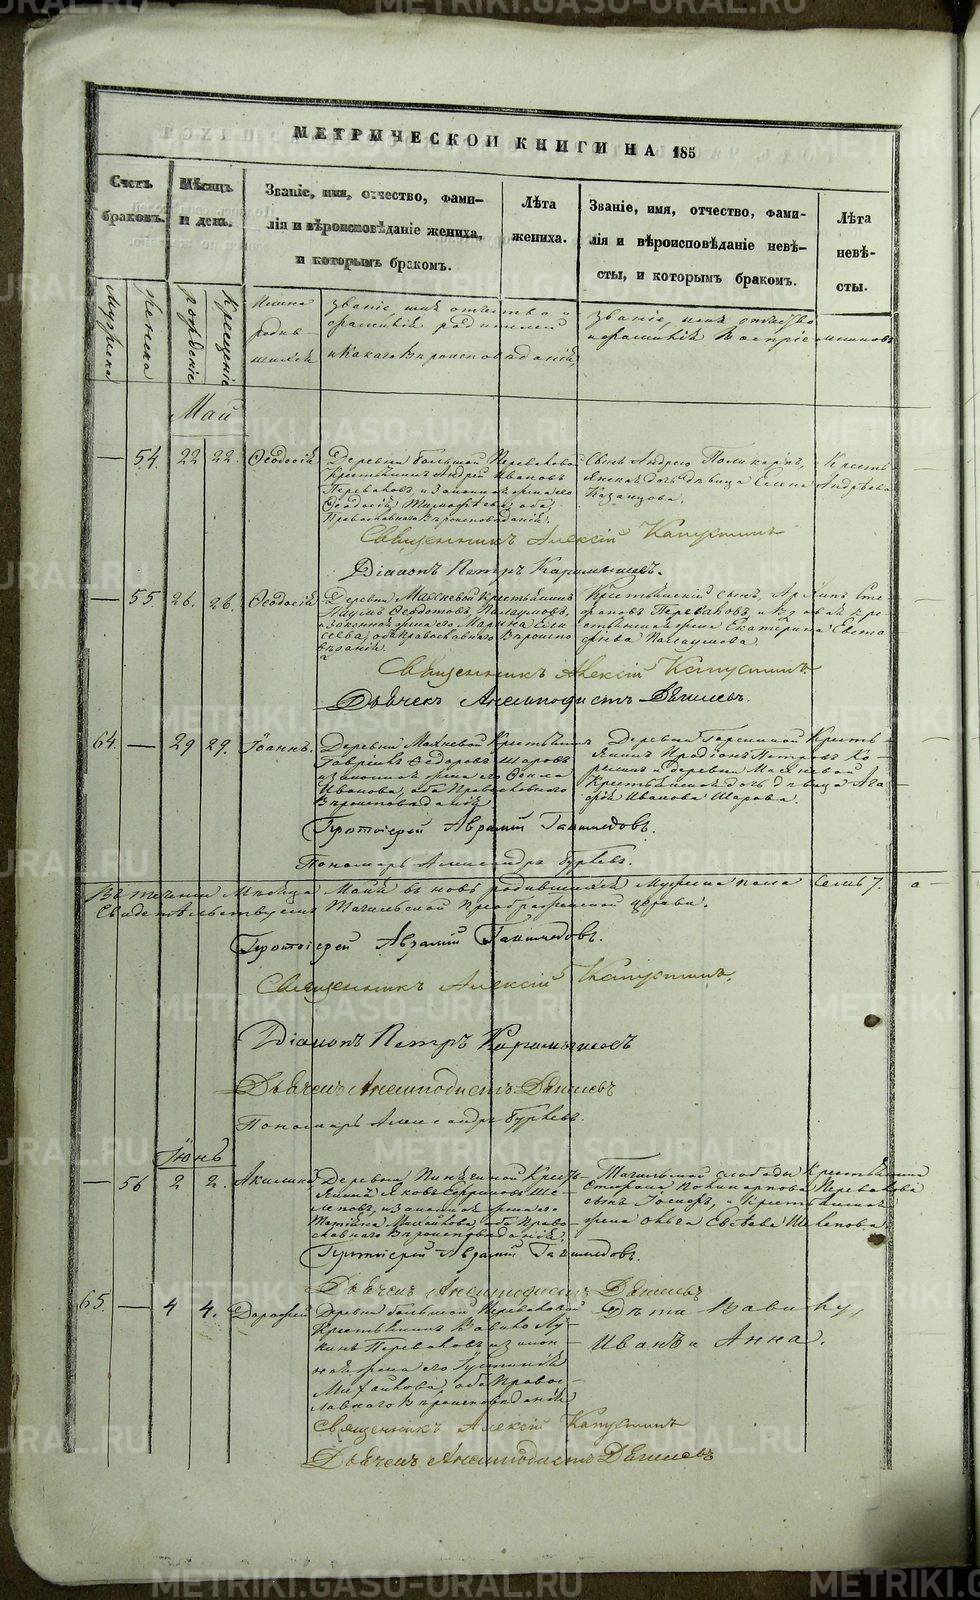 МЕТРИЧЕСКОЙ КНИГИ НА 185
Счетъ браковъ.
Мѣсяцъ и день.
Званіе, имя, отчество, фами-
лія и вѣроисповѣданіе жениха,
и которымъ бракомъ.
Лѣта
жениха.
Званіе, имя, отчество, фами-
лія и вѣроисповѣданіе невѣ-
сты, и которымъ бракомъ.
Лѣта
невѣ-
сты.
Мужеска
женска
рожденіе
крещеніе
Имена
родив-
шихся
званіе имя отчество и
фамилія родителей
и какого вѣроисповѣданія,
званіе, имя отчество
и фамилія воспріемниковъ
Май
— 54. 22 22. Ѳеодосія
Деревни большой Переваловой
крестьянинъ Андрей Ивановъ
Переваловъ, и законная жена его
Ѳеодосія Тимофѣева, оба
Православнаго вѣроисповѣданія.
Сынъ Андрею Поликарпъ, и кресть-
янская дочь дѣвица Елена Андрѣева
Казанцова.
Священникъ Алексій Капустинъ
Діаконъ Петръ Карамышевъ.
— 55. 26. 26. Ѳеодосія
Деревни Махневой крестьянинъ
Наумъ Ѳеодотовъ,
и законная жена его Марина Ели-
сеева, оба православнаго вѣроиспо-
вѣданія.
Крестьянскій сынъ, Архипъ Сте-
фановъ Переваловъ, и вдовая кре-
стьянская жена Екатерина
Священникъ Алексій Капустинъ.
Дьячекъ Анемподистъ Дягилевъ.
64. — 29 29. Іоаннъ.
Деревни Махневой крестьянинъ
Гавріилъ Ѳедоровъ Шаровъ
и законная жена его Ѳекла
Иванова, оба Православнаго
вѣроисповѣданія
Деревни кресть-
янинъ Иродіонъ Петровъ Ко-
и деревни Махневой
крестьянская дочь дѣвица Ага-
фія Иванова Шарова.
Протоіерей Аврамій
Пономарь Александръ
Въ теченіи Мѣсяца Майя вновь родившихся мужеска пола семь 7. а
Свидетельствуемъ Тагильской Преображенской церкви.
Протоіерей Аврамій
Священникъ Алексій Капустинъ,
Діаконъ Петръ Карамышевъ
Дьячекъ Анемподистъ Дягилевъ
Пономарь Александръ
Іюнь
— 56 2 2. Акилина
Деревни кресть-
янинъ Яковъ Ше-
леповъ, и законная жена его
Татіяна Михайлова, оба Право-
славнаго вѣроисповѣданія.
Тагильской слободы крестьянина
Поликарпова Перевалова
сынъ и крестьянская
жена Ольга Шелепова.
Протоіерей Аврамій
Дьячекъ Анемподистъ Дягилевъ
65. — 4 4. Дорофей
Деревни большой Переваловой
крестьянинъ Вавило Лу-
кинъ Переваловъ и закон-
ная жена его Іустинія
Михайлова, оба Правос-
лавнаго вѣроисповѣданія
Дѣти Вавилу,
Иванъ и Анна.
Священникъ Алексій Капустинъ
Дьячекъ Анемподистъ Дягилевъ
METRIKI.GASO-URAL.RU